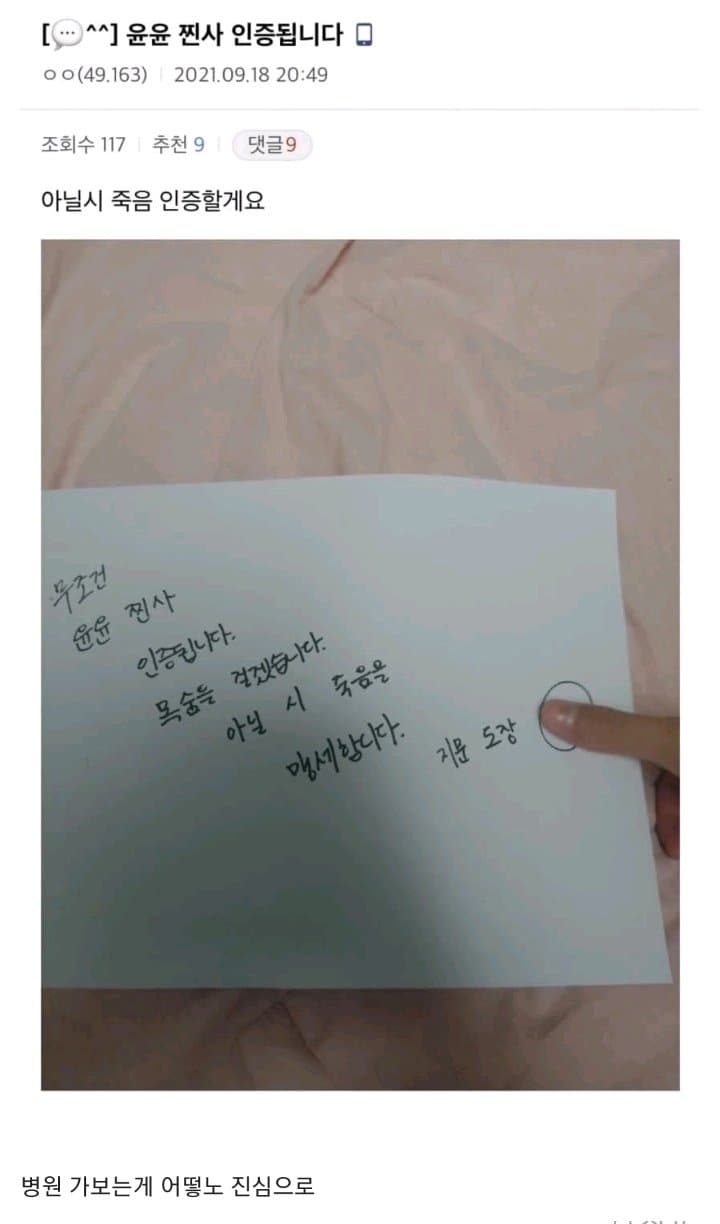 [💬^^] 윤윤 찐사 인증됩니다
ㅇㅇ(49.163) | 2021.09.18 20:49
조회수 117 | 추천 9 | 댓글9
아닐시 죽음 인증할게요
무조건
윤윤 찐사
인증됩니다.
목숨을 걸겠습니다.
아닐 시 죽음을
맹세합니다.
지문 도장
병원 가보는게 어떻노 진심으로